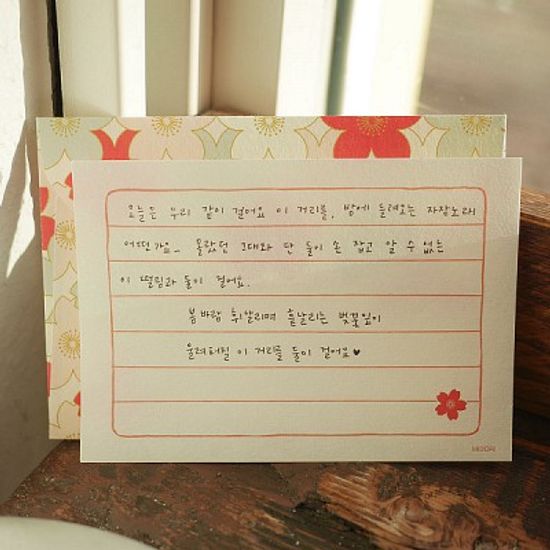 오늘은 우리 같이 걸어요 이 거리를, 밤에 들려오는 자장노래
어떤가요. 몰랐던 그대와 단 둘이 손 잡고 알 수 없는
이 떨림과 둘이 걸어요.
봄바람 휘날리며 흩날리는 벚꽃잎이
울려퍼질 이 거리를 둘이 걸어요♥
MIDORI